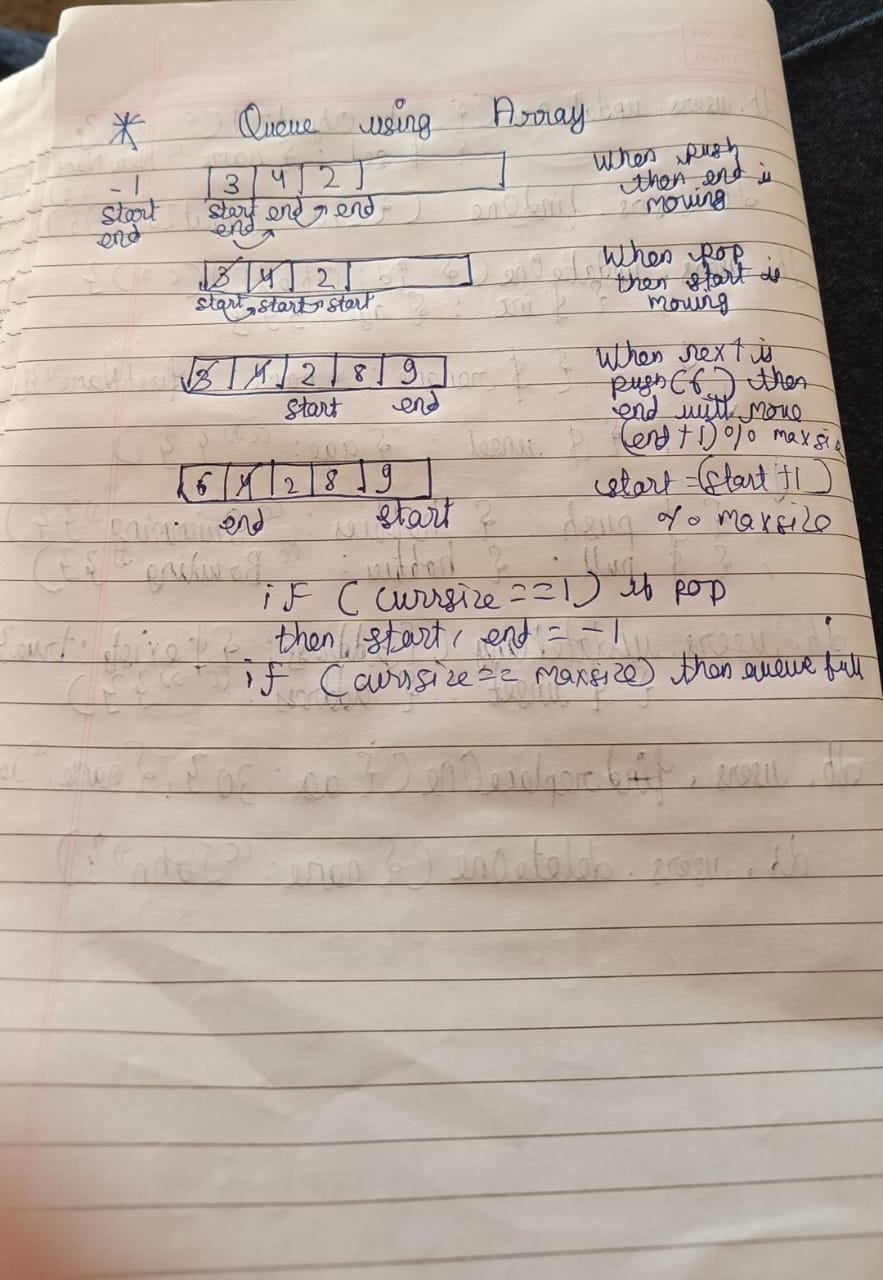 * Queue using Array
-1 3 4 2
start start end end
end end
When push
then end is
moving
3 4 2
start start start
When pop
then start is
moving
3 4 2 8 9
start end
When next is
push(6) then
end will move
(end + 1) % maxsize
6 4 2 8 9
end start
start = (start + 1)
% maxsize
if (currsize == 1) if pop
then start, end = -1
if (currsize == maxsize) then queue full